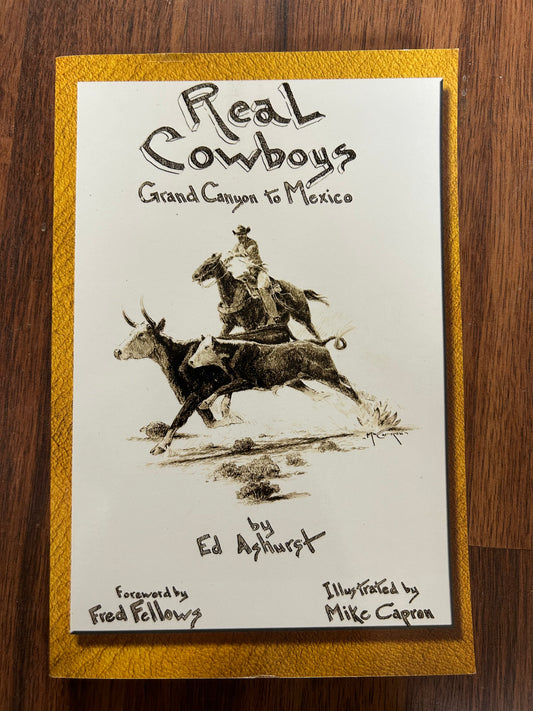 Real
Cowboys
Grand Canyon to Mexico
by
Ed Ashurst
Foreword by
Fred Fellows
Illustrated by
Mike Capron